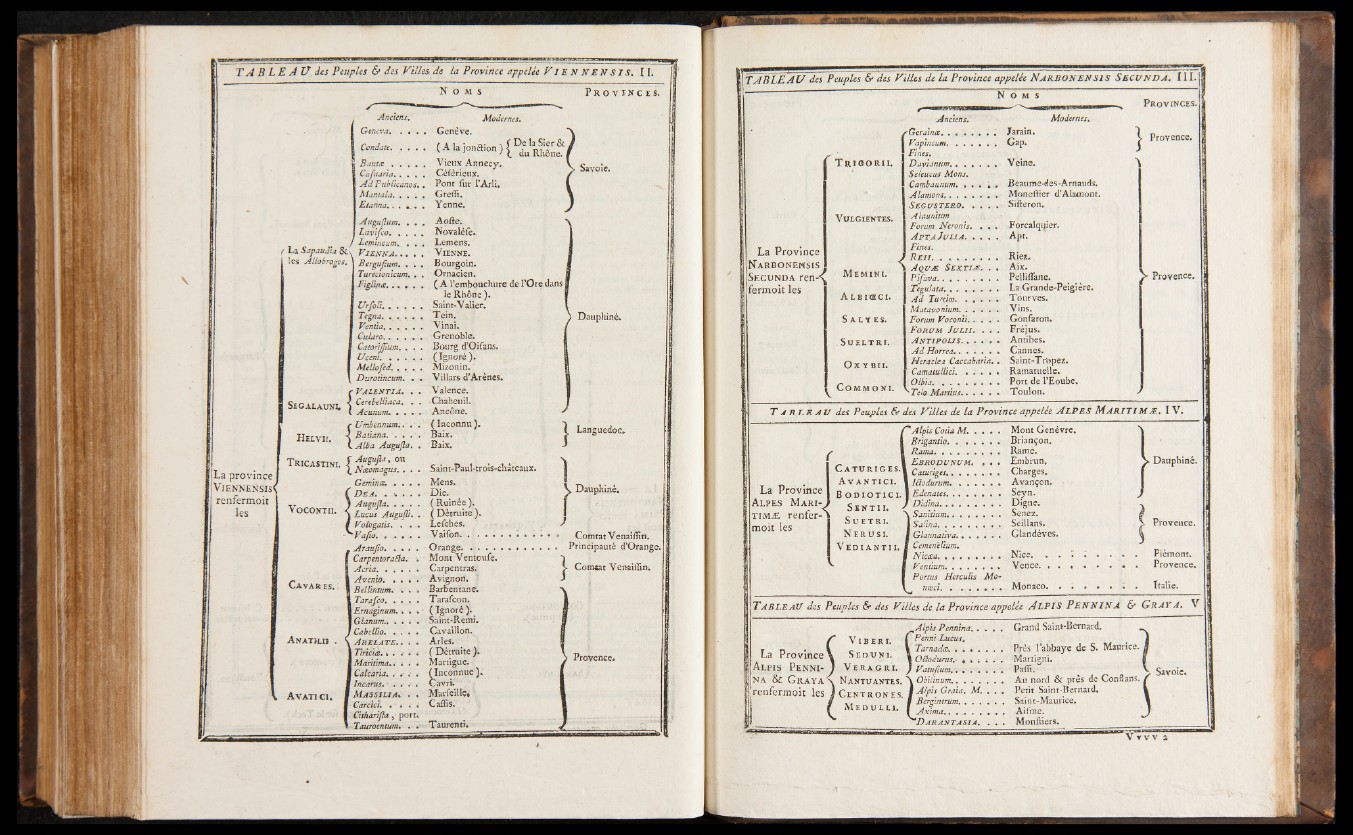 TABLEAU des Peuples & des Villes de la Province appelée VIENNENSIS. II.
NOMS PROVINCES.
Anciens. Modernes.
La province VIENNENSIS renfermoit les
La Sapaudia & les Allobroges.
Geneva. . . . . Genêve.
Condate. . . . . (A la jonction) { De la Sier & du Rhône.
Bautæ . . . . . Vieux Annecy.
Casuaria. . . . . Céférieux.
Ad Publicanos. . Pont sur l'Arli.
Mantala. . . . . Gressi.
Etanna. . . . . Yenne.
Savoie.
Augustum. . . . Aoste.
Lavisco. . . . . Novalèse.
Lemincum. . . . Lemens.
VIENNA. . . . . VIENNE.
Bergusium. . . . Bourgoin.
Turecionicum. . . Ornacieu.
Figlinæ. . . . . . (A l'embouchure de l'Ore dans
le Rhône).
Ursoli. . . . . . Saint-Valier.
Tegna. . . . . . Tein.
Ventia. . . . . . Vinai.
Cularo. . . . . . Grenoble.
Catorissium. . . . Bourg d'Oisans.
Uceni. . . . . . (Ignoré).
Mellosed. . . . . Mizonin.
Durotincum. . . Villars d'Arènes.
Dauphiné.
SEGALAUNI.
VALENTIA. . . Valence.
Cerebelliaca. . . Chabeuil.
Acunum. . . . . Ancône.
HELVII.
Umbennum. . . . (Inconnu).
Batiana. . . . . Baix.
Alba Augusta. . Baix.
Languedoc.
TRICASTINI.
Augusta, ou
Nœomagus. . . . Saint-Paul-trois-châteaux.
VOCONTII.
Geminæ. . . . . Mens.
DEA. . . . . . Die.
Augusta. . . . . (Ruinée).
Lucus Augusti. . (Détruite).
Vologatis. . . . . Lesches.
Dauphiné.
Vasio. . . . . . Vaison. . . . . . . . . . . . Comtat Venaissin.
CAVARES.
Arausio. . . . . Orange. . . . . . . . . . . . Principauté d'Orange.
Carpentoracta. . Mont Ventouse.
Aeria. . . . . . Carpentras.
Avenio. . . . . Avignon.
Comtat Venaissin.
Bellintum. . . . Barbentane.
Tarasco. . . . . Tarascon.
Ernaginum. . . . (Ignoré).
Glanum. . . . . Saint-Remi.
Cabellio. . . . . Cavaillon.
ANATILII.
ARELATE. . . . Arles.
Tiriciæ. . . . . . (Détruite).
Maritima. . . . . Martigue.
Calcaria. . . . . (Inconnue).
Incarus. . . . . Cavri.
AVATICI.
MASSILIA. . . Marseille.
Carcici. . . . . Cassis.
Citharista, port.
Tauroentum. . . Taurenti.
Provence.
TABLEAU des Peuples & des Villes de la Province appelée NARBONENSIS SECUNDA. III.
NOMS PROVINCES.
Anciens. Modernes.
La Province NARBONENSIS SECUNDA renfermoit les
TRIGORII.
VULGIENTES.
MEMINI.
ALBIŒCI.
SALYES.
SUELTRI.
OXYBII.
COMMONI.
Gerainæ. . . . . . . . Jarain.
Vapincum. . . . . . . Gap.
Provence.
Fines.
Davianum. . . . . . . Veine.
Seleucus Mons.
Cambaunum. . . . . . Beaume-des-Arnauds.
Alamons. . . . . . . . Monestier d'Alamont.
SEGUSTERO. . . . . Sisteron.
Alaunium
Forum Neronis. . . . Forcalquier.
APTA JULIA. . . . . Apt.
Fines.
REII. . . . . . . . . Riez.
AQUÆ SEXTIÆ. . . Aix.
Pisava. . . . . . . . . Pellissane.
Tegulata. . . . . . . . La Grande-Peigière.
Ad Turrim. . . . . . Tourves.
Matavonium. . . . . . Vins.
Forum Voconii. . . . . Gonfaron.
FORUM JULII. . . . Fréjus.
ANTIPOLIS. . . . . . Antibes.
Ad Horrea. . . . . . . Cannes.
Heraclea Caccabaria. . Saint-Tropez.
Camatullici. . . . . . Ramatuelle.
Olbia. . . . . . . . . Port de l'Eoube.
Telo Martius. . . . . . Toulon.
Provence.
TABLEAU des Peuples & des Villes de la Province appelée ALPES MARITIMÆ. IV.
La Province ALPES MARITIMÆ renfermoit les
CATURIGES.
AVANTICI.
BODIOTICI.
SENTII.
SUETRI.
NERUSI.
VEDIANTII.
Alpis Cotia M. . . . . Mont Genèvre.
Brigantio. . . . . . . Briançon.
Rama. . . . . . . . . Rame.
EBRODUNUM. . . . Embrun.
Caturiges. . . . . . . . Charges.
Ictodurum. . . . . . . Avançon.
Dauphiné.
Edenates. . . . . . . . Seyn.
Didina. . . . . . . . . Digne.
Sanitium. . . . . . . . Senez.
Salina. . . . . . . . . Seillans.
Glannativa. . . . . . . Glandèves.
Provence.
Cemenelium.
Nicæa. . . . . . . . . Nice. . . . . . . . . . Piémont.
Ventium. . . . . . . . Vence. . . . . . . . . . Provence.
Portus Herculis Mo-
nœci. . . . . . . . Monaco. . . . . . . . . Italie.
TABLEAU des Peuples & des Villes de la Province appelée ALPIS PENNINA & GRAYA. V
La Province ALPIS PENNINA & GRAYA renfermoit les
VIBERI.
SEDUNI.
VERAGRI.
NANTUANTES.
CENTRONES.
MEDULLI.
Alpis Pennina. . . . . Grand Saint-Bernard.
Penni-Lucus.
Tarnadæ. . . . . . . . Près l'abbaye de S. Maurice.
Octodurus. . . . . . . Martigni.
Vatusium. . . . . . . . Passi.
Obilinum. . . . . . . . Au nord & près de Conflans.
Alpis Graia. M. . . . Petit Saint-Bernard.
Bergintrum. . . . . . . Saint-Maurice.
Axima. . . . . . . . . Aisme.
DARANTASIA. . . . Monstiers.
Savoie.
Vvvv 2